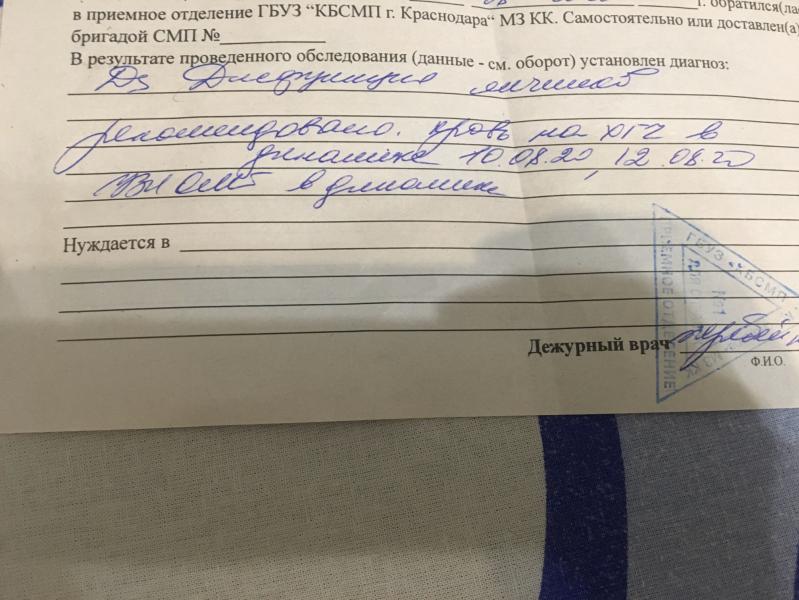 г. обратился(лась)
в приемное отделение ГБУЗ "КБСМП г. Краснодара" МЗ КК. Самостоятельно или доставлен(а)
бригадой СМП №
В результате проведенного обследования (данные - см. оборот) установлен диагноз:
Ds Дисфункция яичников
рекомендовано. кровь на ХГЧ в
динамике 10.08.20, 12.08.20
УЗИ ОМТ в динамике
Нуждается в
ГБУЗ "КБСМП
ПРИЕМНОЕ ОТДЕЛЕНИЕ
№1
Дежурный врач
Ф.И.О.